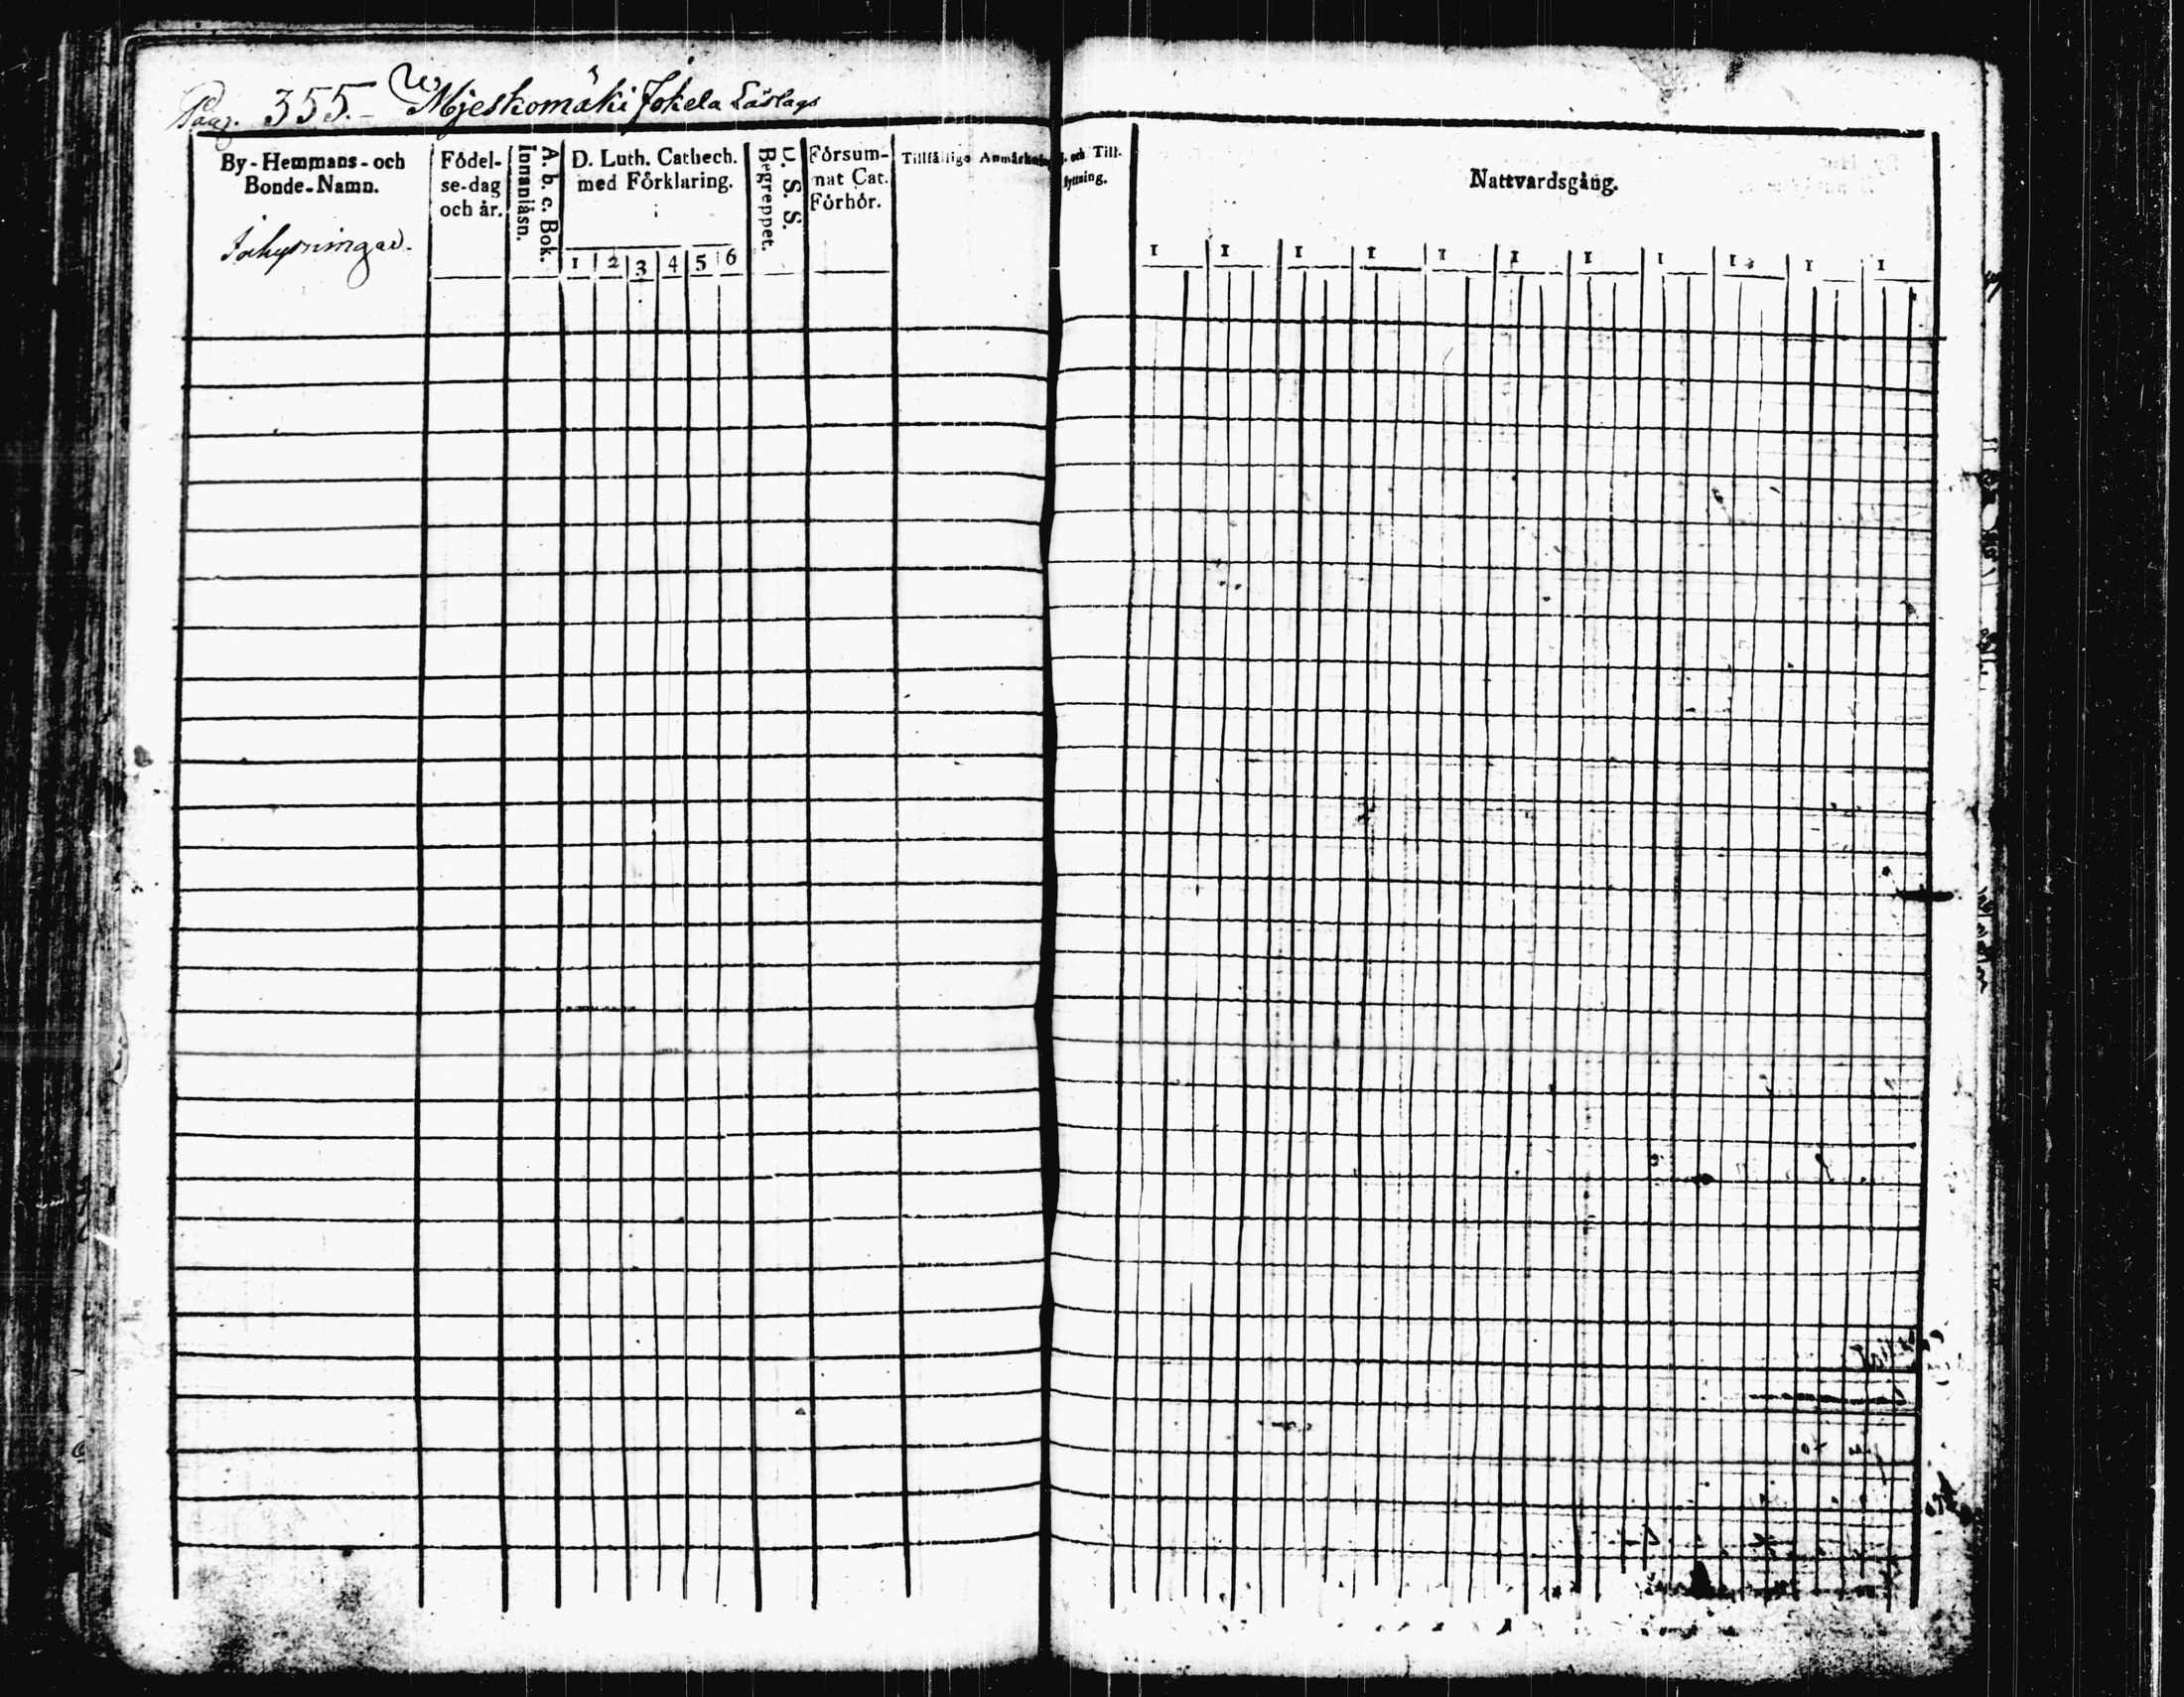 Pag. 355. Mjeskomäki Jokela Läslags
By-Hemmans-och Bonde-Namn.
Inhysningar.
Födel-
se-dag
och år.
A. b. c. Bok.
Innanläsn.
D. Luth. Cathech.
med Förklaring.
1 2 3 4 5 6
D. S. S.
Begreppet.
Försum-
mat Cat.
Förhör.
Tillfällige Anmärkning och Till-
flyttning.
Nattvardsgång.
1 1 1 1 1 1 1 1 1 1 1